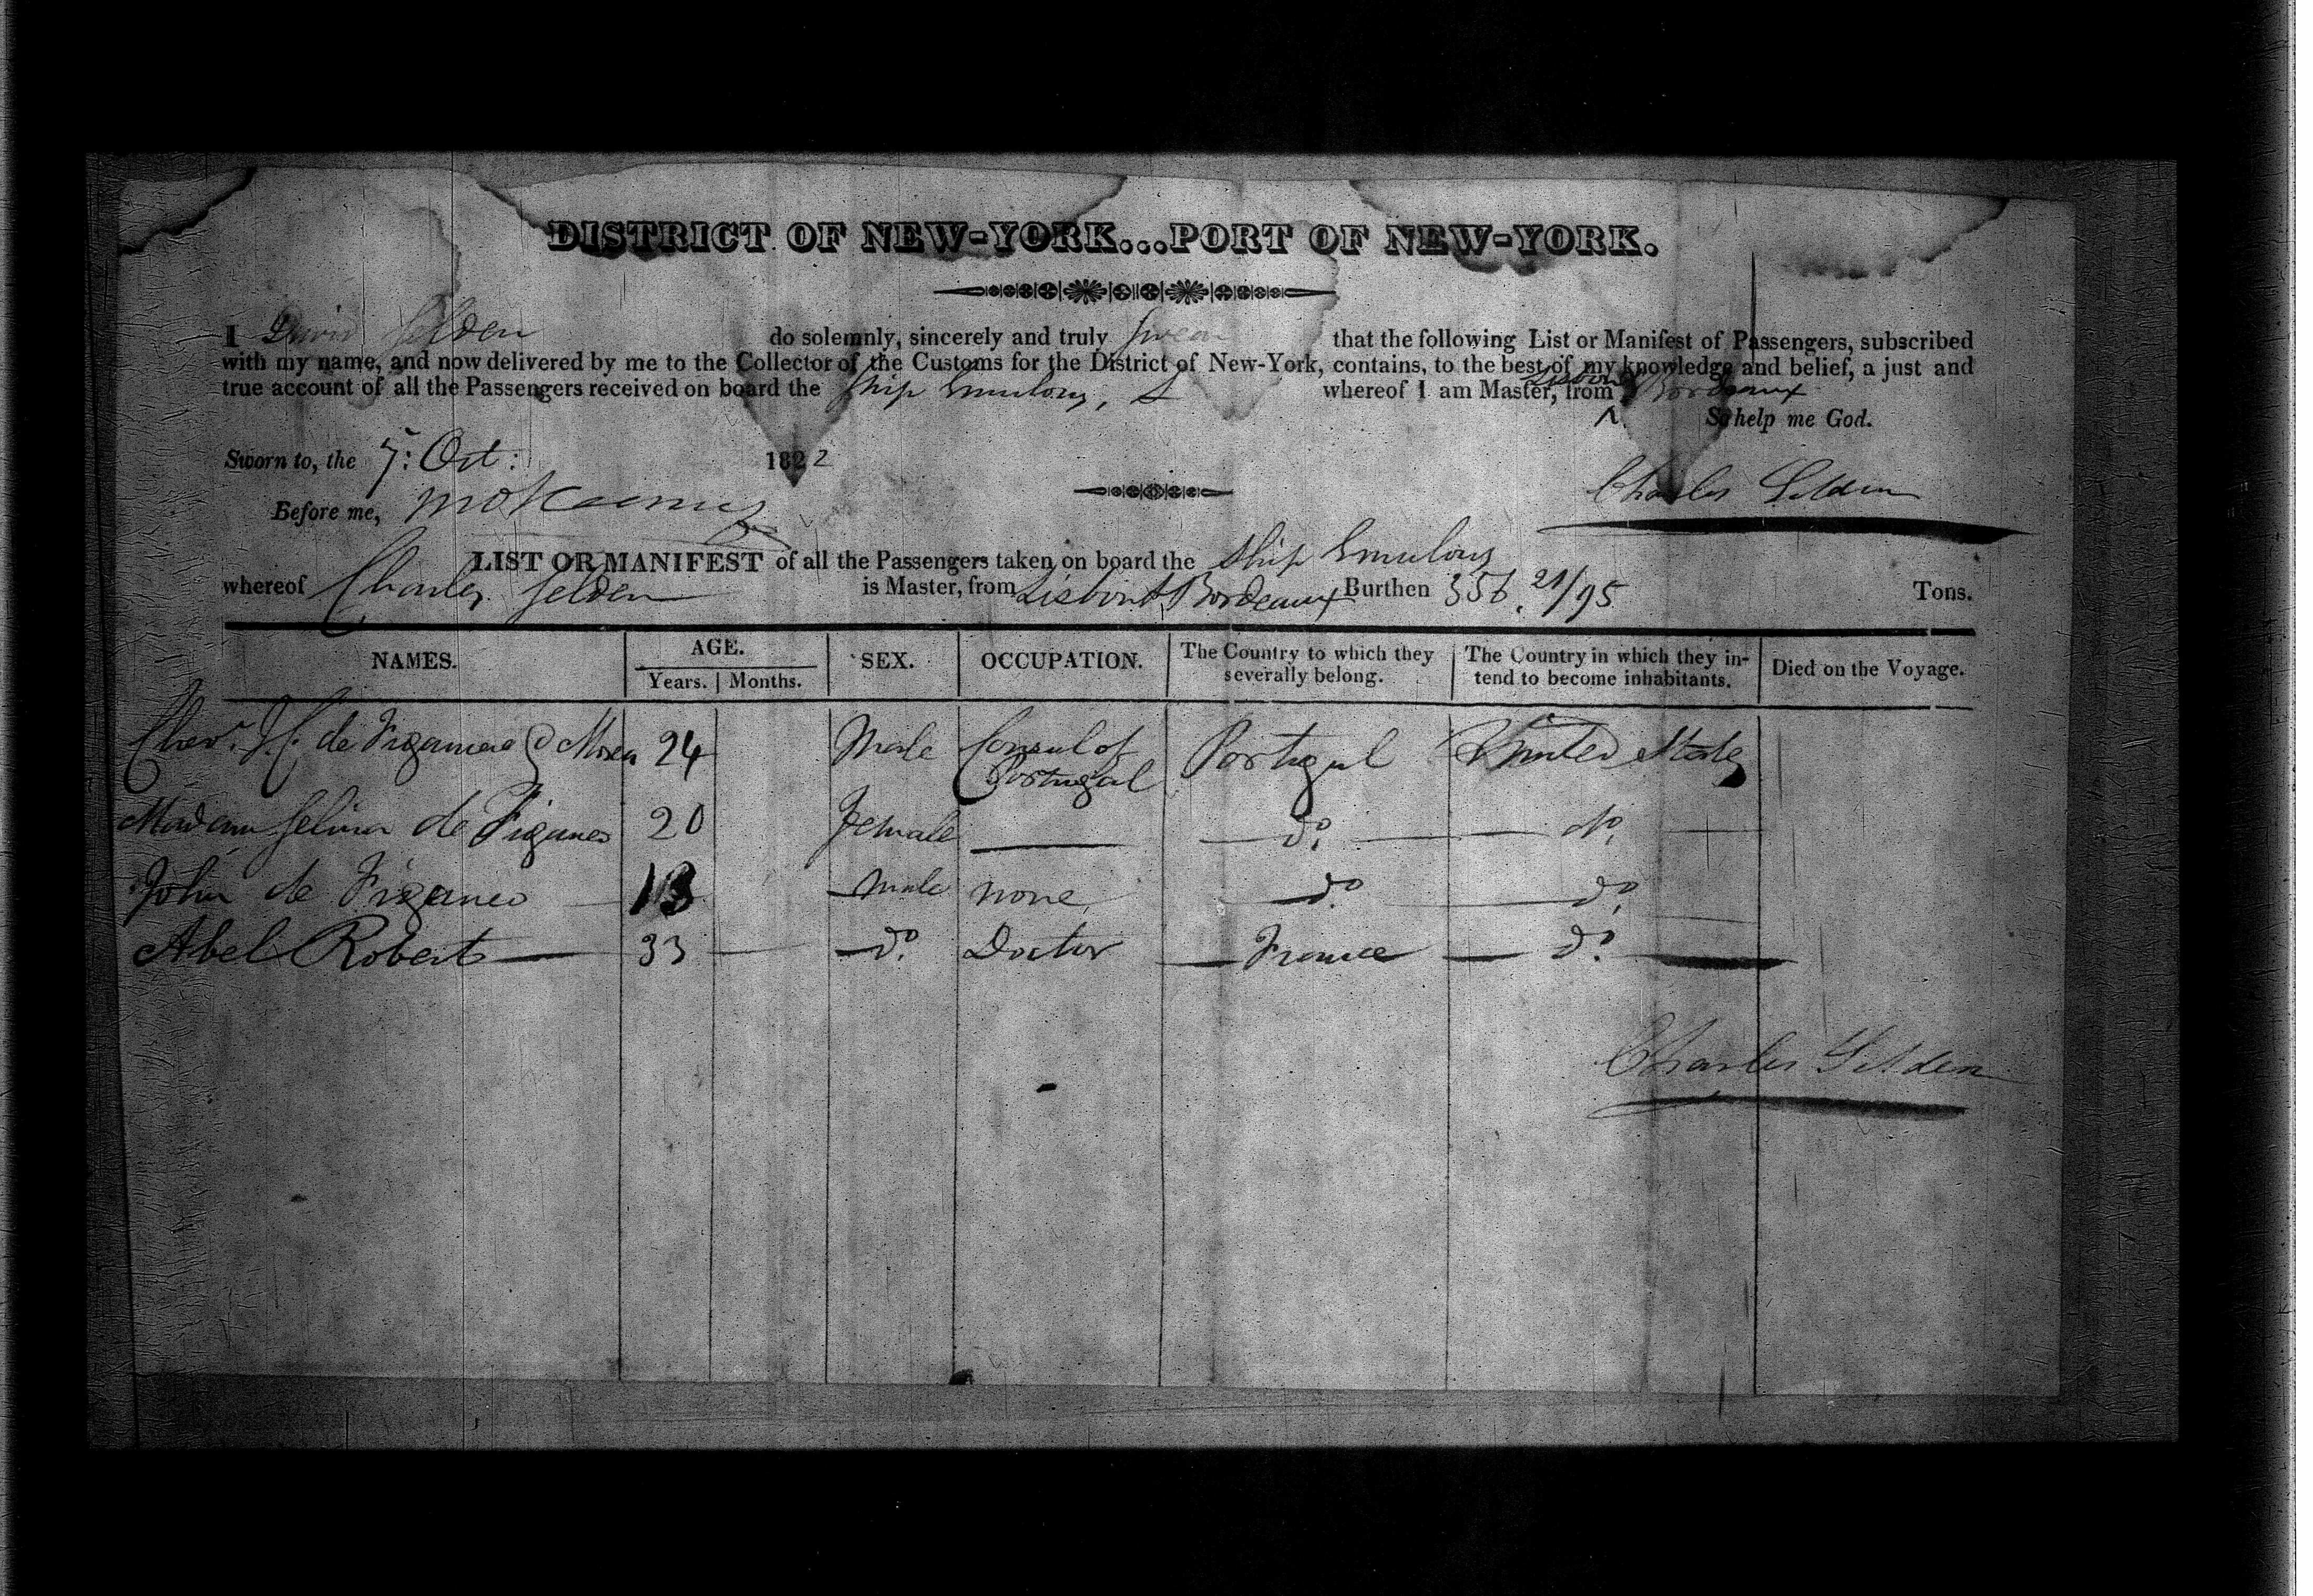 DISTRICT OF NEW-YORK...PORT OF NEW-YORK.
I Selden do solemnly, sincerely and truly swear that the following List or Manifest of Passengers, subscribed
with my name, and now delivered by me to the Collector of the Customs for the District of New-York, contains, to the best of my knowledge and belief, a just and
true account of all the Passengers received on board the Ship Emulous, whereof I am Master, from Lisbon & Bordeaux
So help me God.
Sworn to, the 7: Oct: 1822
Charles Selden
Before me,
LIST OR MANIFEST of all the Passengers taken on board the Ship Emulous
whereof Charles Selden is Master, from Lisbon & Bordeaux Burthen 356. 21/95 Tons.
NAMES. AGE. SEX. OCCUPATION. The Country to which they severally belong. The Country in which they intend to become inhabitants. Died on the Voyage.
Years. Months.
Chevr. J. C. de Figaniere 24 Male Consul of Portugal Portugal United States
Madam Selina de Figanes 20 Female do. do.
John de Figaneo 13 Male none do. do.
Abel Robert 33 do. Doctor France do.
Charles Selden